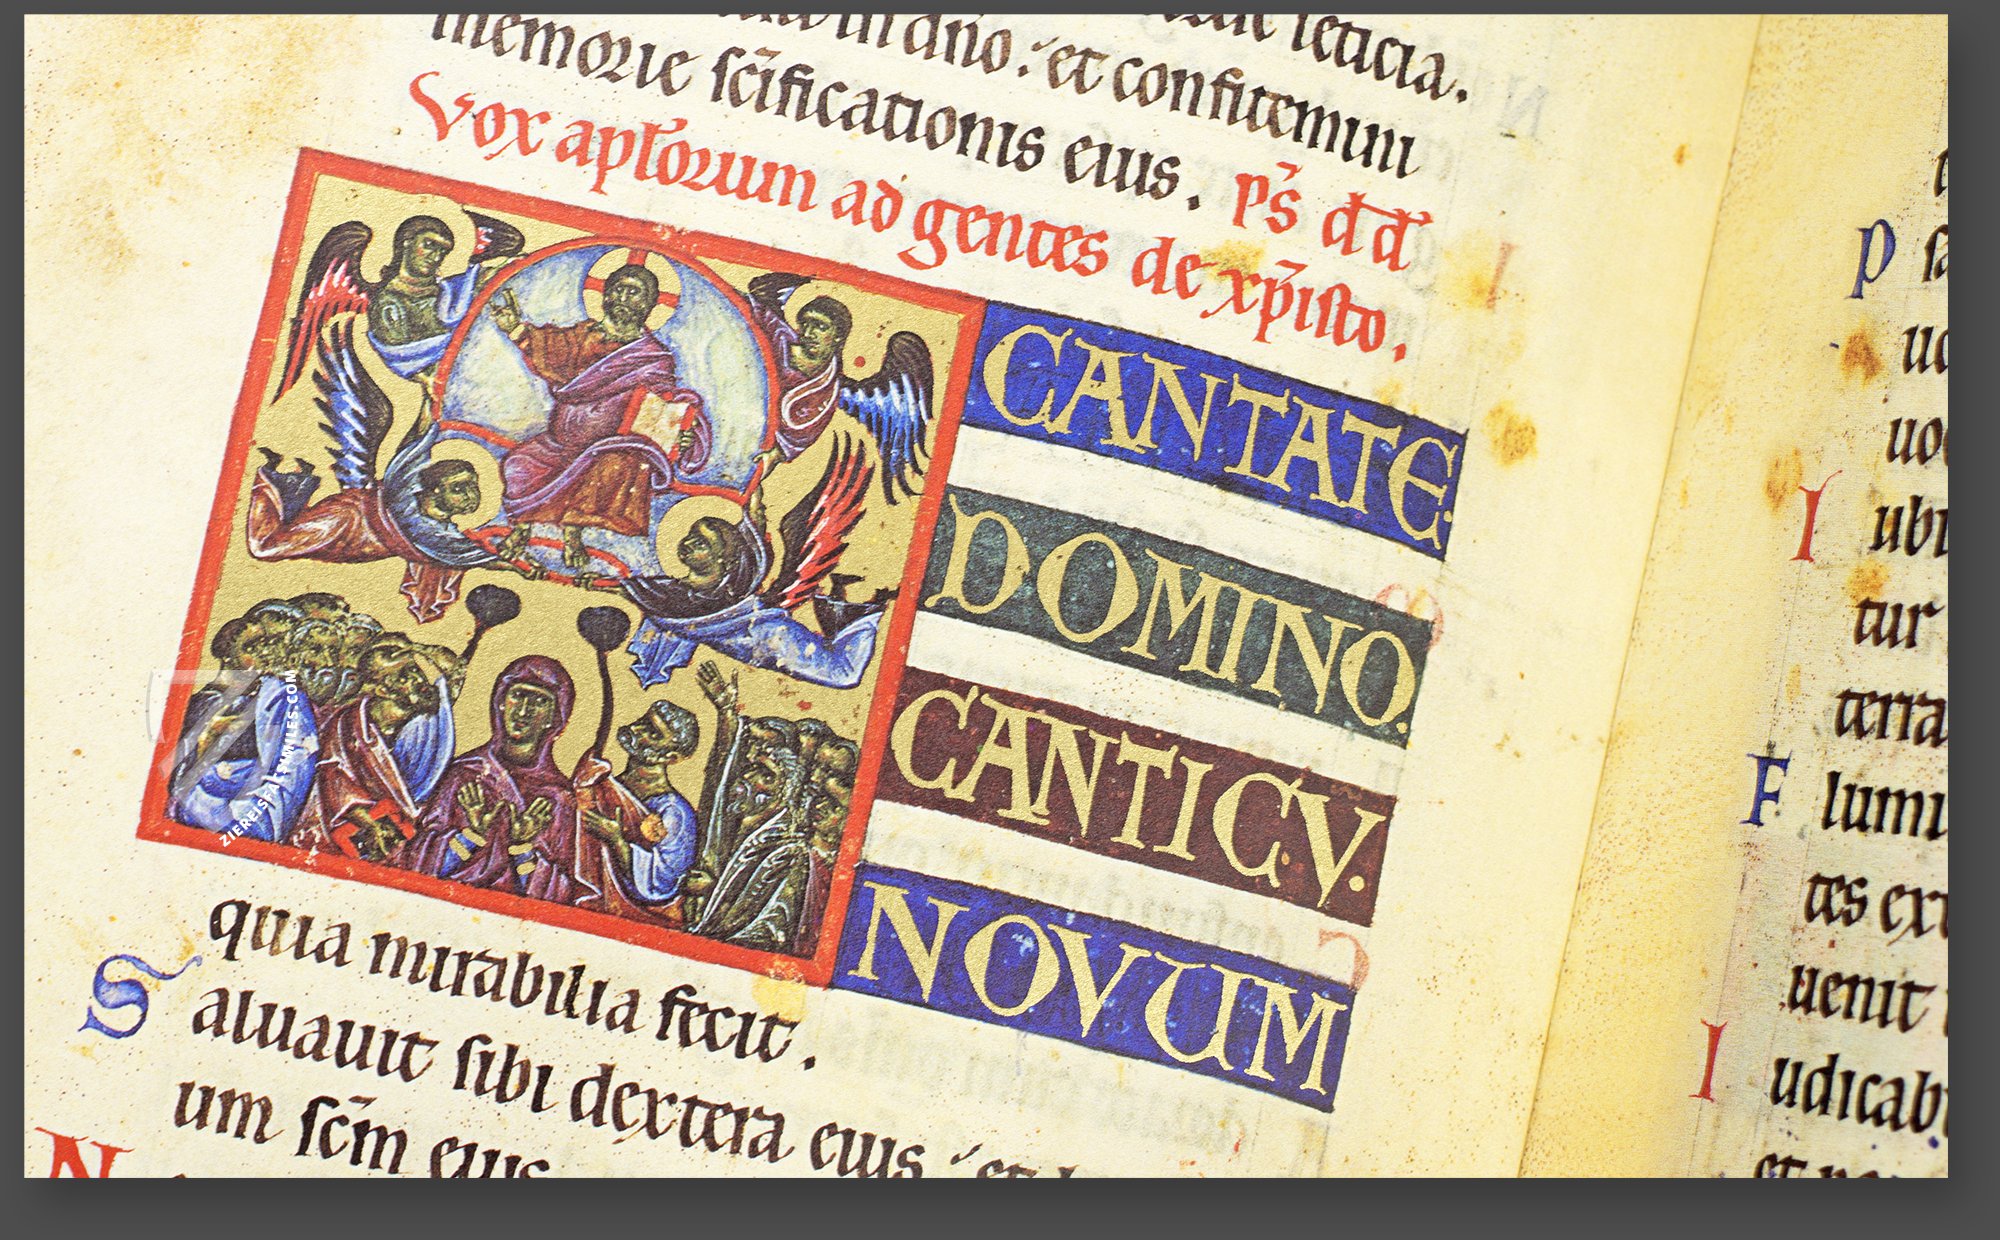 in dño : et confitemini
leticia.
memorie sc̄ificationis eius. p̄s d̄d̄
Vox apl̄orum ad gentes de xp̄isto.
CANTATE
DOMINO.
CANTICV.
NOVUM
quia mirabilia fecit.
Saluauit sibi dextera eius : et
um sc̄m eius
N
P
uo
I ubi
tur
terra
F lumi
tes ex
uenit
I udicab
et
ZIEREISFACSIMILES.COM